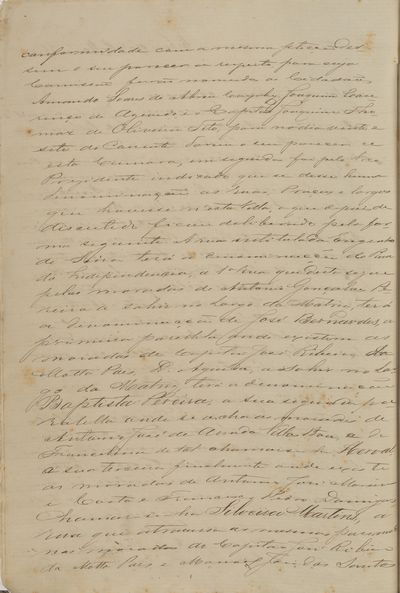 conformidade com a mesma petição des
sem o seu parecer a respeito para cuja
Commissão forão nomeados os Cidadãos
Armando Soares de Abreu Joaquim Lou
renço de Azevedo e Capitão Joaquim Tho
maz de Oliveira para no dia vinte e
sete do Corrente darem o seu parecer a
esta Camara, em seguida foi pelo Snr
Presidente indicado que se desse huma
denominação as Ruas, Praças e largos
que houvesse n'esta Villa, o que depois de
discutido ficou deliberado pela for
ma seguinte A rua intitulada
terá a denominação de Rua
da Independencia, a 1ª Rua que desta segue
pelas moradas de Antonio Gonçalves Pe
reira a sahir no Largo da Matriz, terá
a denominação de José Bernardes, a
primeira parallela, onde existem as
moradas de Capitão José Ribeiro da
Motta Paes, D. a sahir no lar
go da Matriz, terá a denominação
Baptista Pereira, a sua segunda pa
ralella onde se acha as moradas de
Antonio José de e de
Francelina de tal chamar-se-ha
a sua terceira finalmente onde existe
as moradas de Antonio José
e Costa e Pedro Domingues
chamar-se-ha Silveira Martins, a
rua que atravessa as mesmas passando
nas moradas do Capitão José Ribeiro
da Motta Paes e Manoel José dos Santos